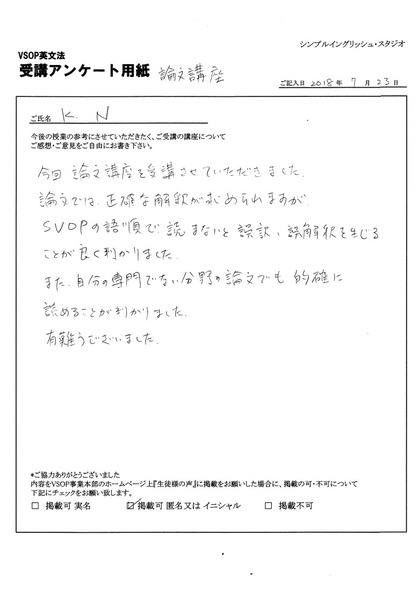 シンプルイングリッシュ・スタジオ
VSOP英文法
受講アンケート用紙 論文講座
ご記入日 2018年 7月 23日
ご氏名 K. N
今後の授業の参考にさせていただきたく、ご受講の講座について
ご感想・ご意見をご自由にお書き下さい。
今回 論文講座を受講させていただきました.
論文では、正確な解釈が求められますが
SVOPの語順で読まないと誤訳、誤解釈を生じる
ことが良く判かりました.
また、自分の専門でない分野の論文でも 的確に
読めることが判かりました.
有難うございました.
*ご協力ありがとうございました
内容をVSOP事業本部のホームページ上『生徒様の声』に掲載をお願いした場合に、掲載の可・不可について
下記にチェックをお願い致します。
□ 掲載可 実名 ☑ 掲載可 匿名又は イニシャル □ 掲載不可